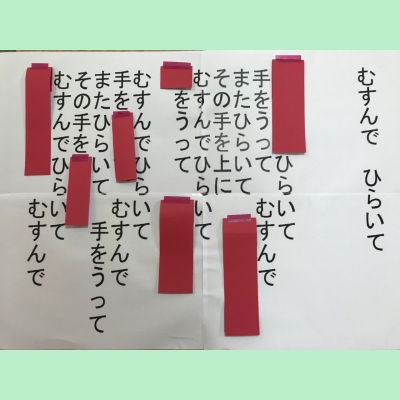 むすんで　ひらいて
ひらいて
手をうって　むすんで
またひらいて
その手を上に
むすんでひらいて
をうって
むすんでひらいて
手を　むすんで
またひらいて　手をうって
その手を
むすんでひらいて
むすんで